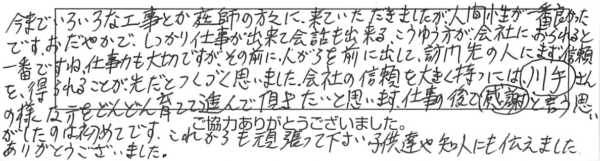 今までいろいろな工事とか技師の方々に、来ていただきましたが人間性が一番良かった
です。おだやかで、しっかり仕事が出来て会話も出来る。こうゆう方が会社におられると
一番ですね。仕事力も大切ですがその前に、人がらを前に出して、訪門先の人にまず信頼
を、得られることが先だとつくづく思いました。会社の信頼を大きく持つには、川手さん
の様な方をどんどん育てて進んで頂きたいと思います。仕事の後で感謝と言う思い
がしたのは初めてです。これからも頑張って下さい。子供達や知人にも伝えました。
ご協力ありがとうございました。
ありがとうございました。